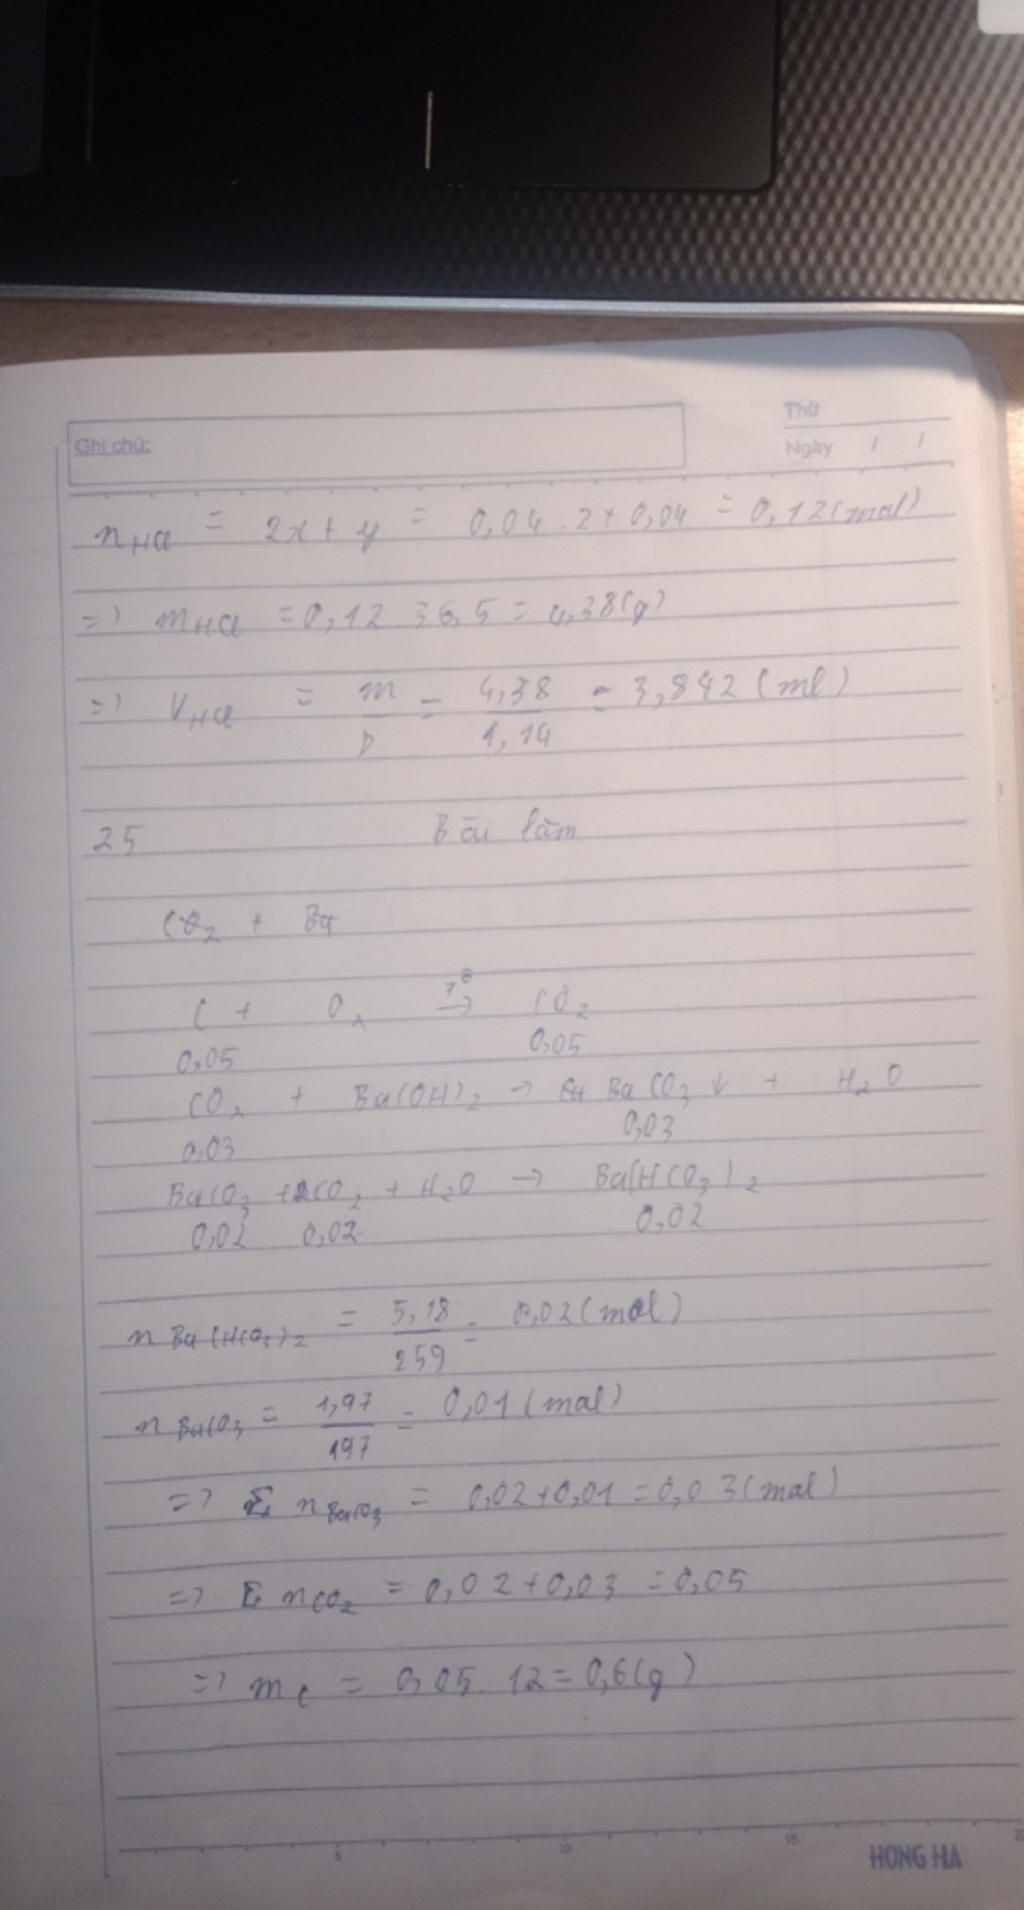 Ghi chú:
Thứ
Ngày / /
nHCl = 2x + y = 0,04 . 2 + 0,04 = 0,12 (mol)
=> mHCl = 0,12 . 36,5 = 4,38 (g)
=> VHCl = m/D = 4,38/1,14 = 3,842 (ml)
25 Bài làm
CO2 + Ba
C + O2 → CO2
0,05 0,05
CO2 + Ba(OH)2 → BaCO3 ↓ + H2O
0,03 0,03
BaCO3 + CO2 + H2O → Ba(HCO3)2
0,02 0,02 0,02
n Ba(HCO3)2 = 5,18/259 = 0,02 (mol)
n BaCO3 = 1,97/197 = 0,01 (mol)
=> Σ n BaCO3 = 0,02 + 0,01 = 0,03 (mol)
=> Σ n CO2 = 0,02 + 0,03 = 0,05
=> mC = 0,05 . 12 = 0,6 (g)
5 10 15 20
HONG HA